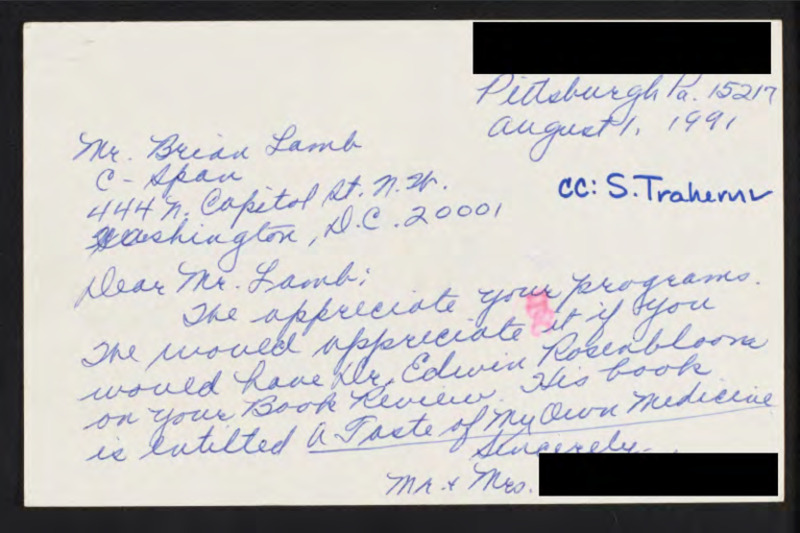 Pittsburgh Pa. 15217
August 1, 1991
Mr. Brian Lamb
C-Span
444 N. Capitol St. N.W.
Washington, D.C. 20001
cc: S. Trahern
Dear Mr. Lamb:
We appreciate your programs.
We would appreciate it if you
would have Dr. Edwin Rosenbloom
on your Book Review. His book
is entilted A Taste of My Own Medicine
Sincerely,
Mr. & Mrs.